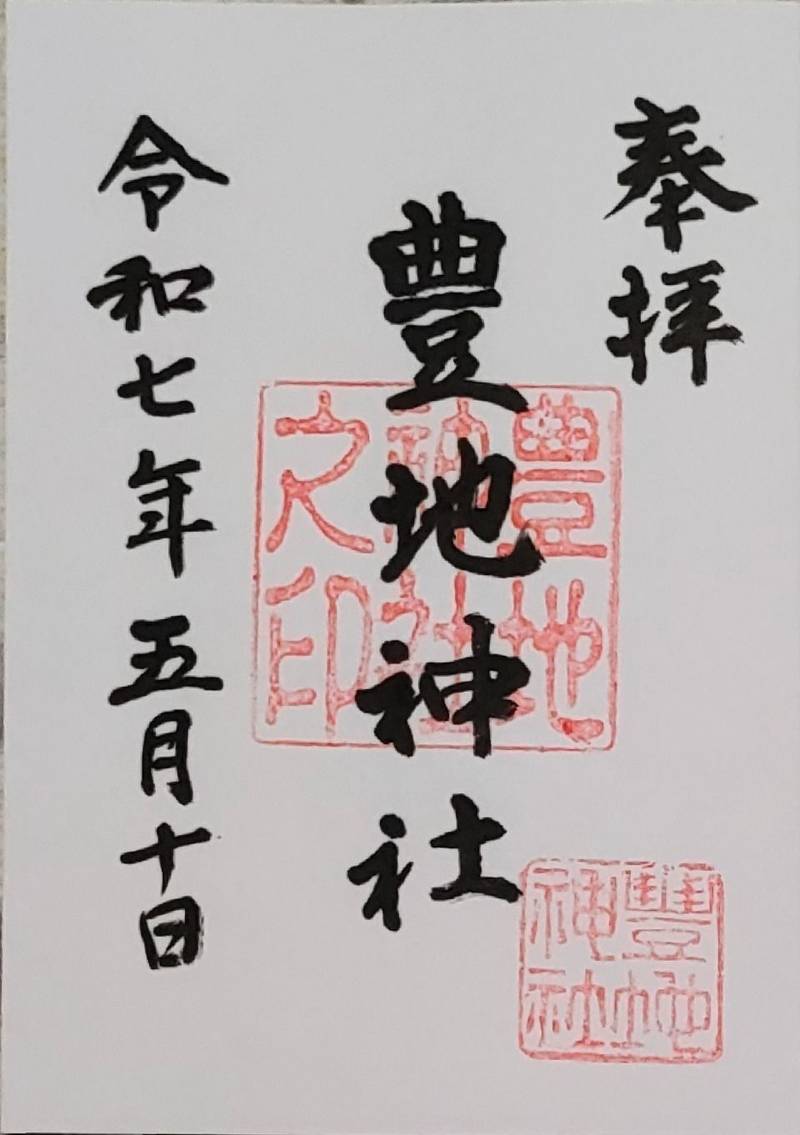 奉拝
豊地神社
令和七年五月十日
豊地
神社
之印
豊地
神社